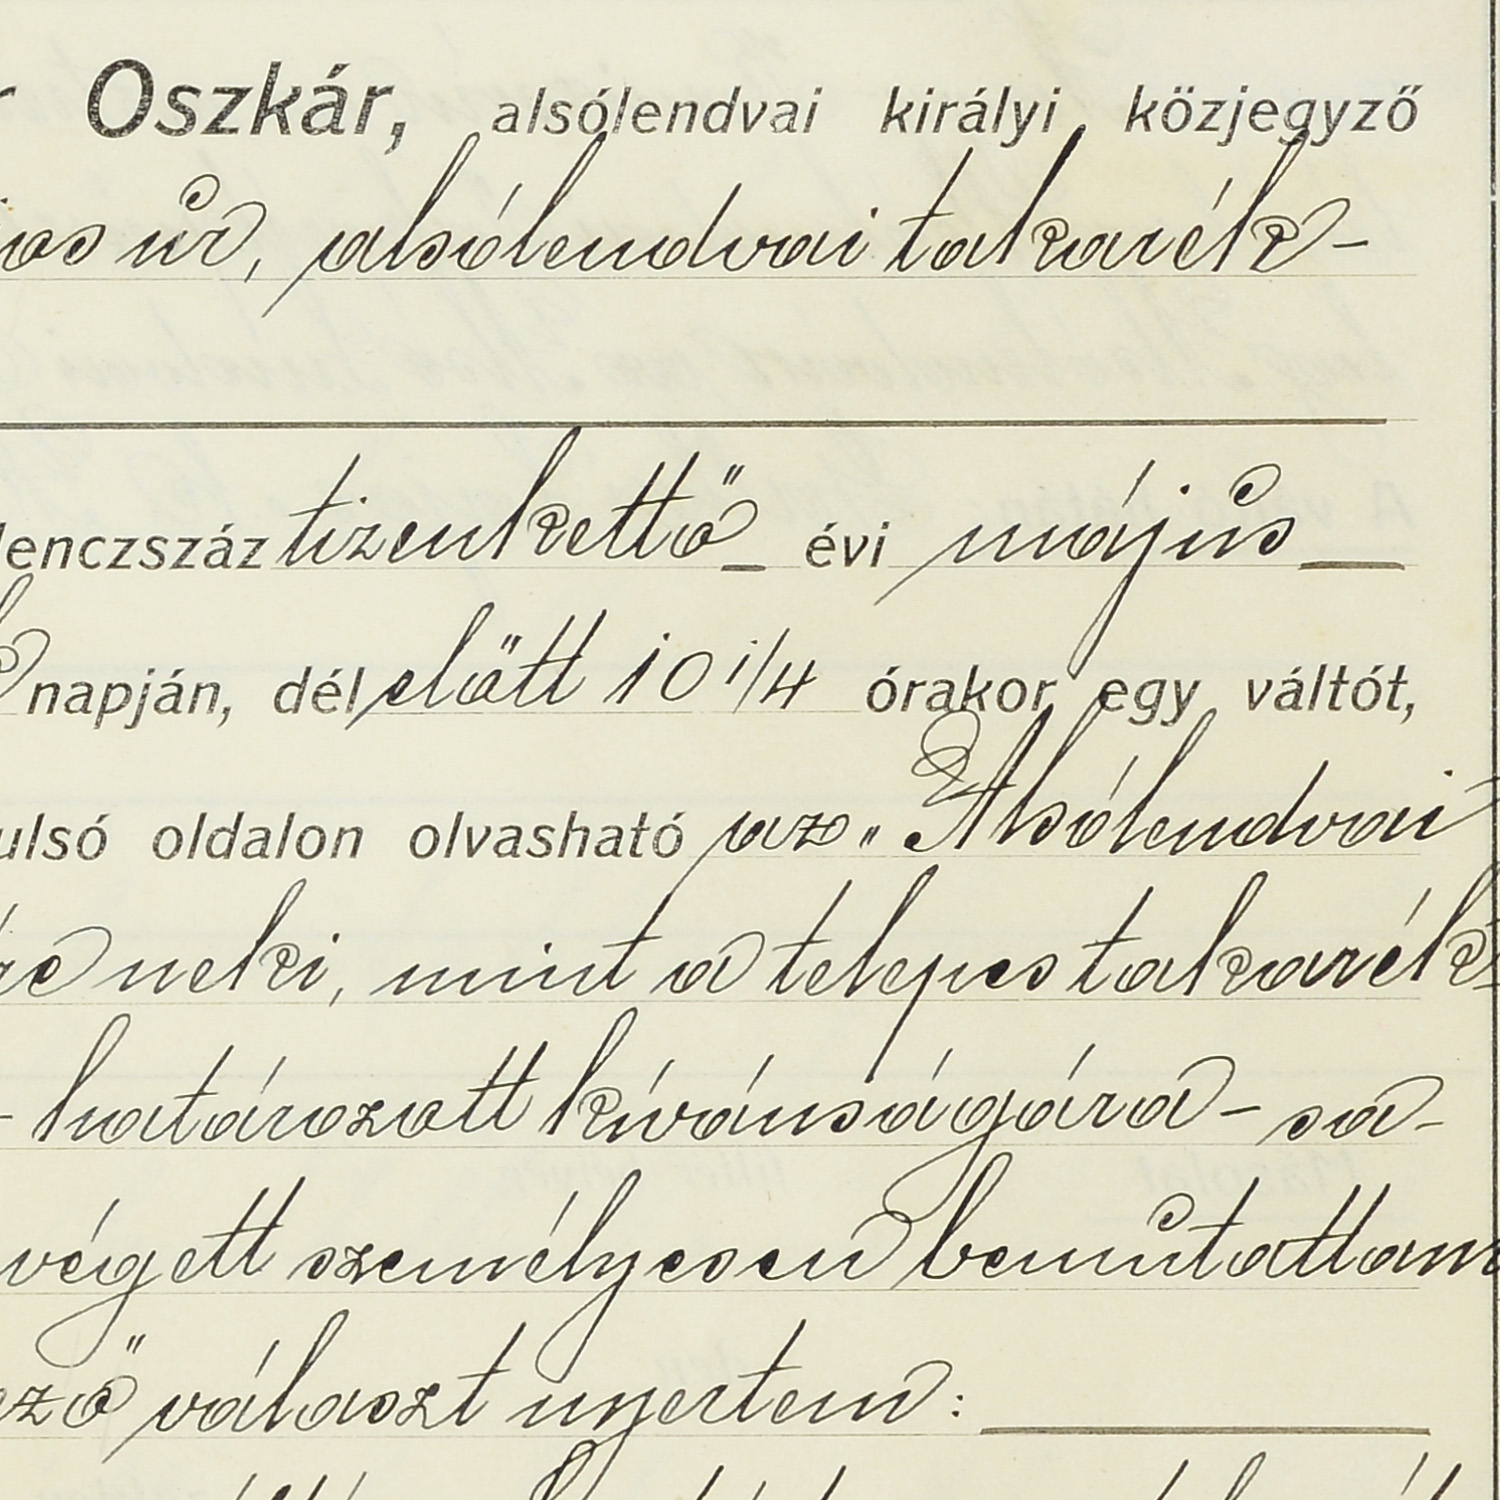 Oszkár, alsólendvai királyi közjegyző
úr, alsólendvai takarék-
lenczszáz tizenkettő évi május
napján, délelőtt 10 1/4 órakor egy váltót,
ulsó oldalon olvasható az „Alsólendvai
neki, mint a telepes takarék-
- határozott kívánságára - sa-
végett személyesen bemutattam
ező választ nyertem: